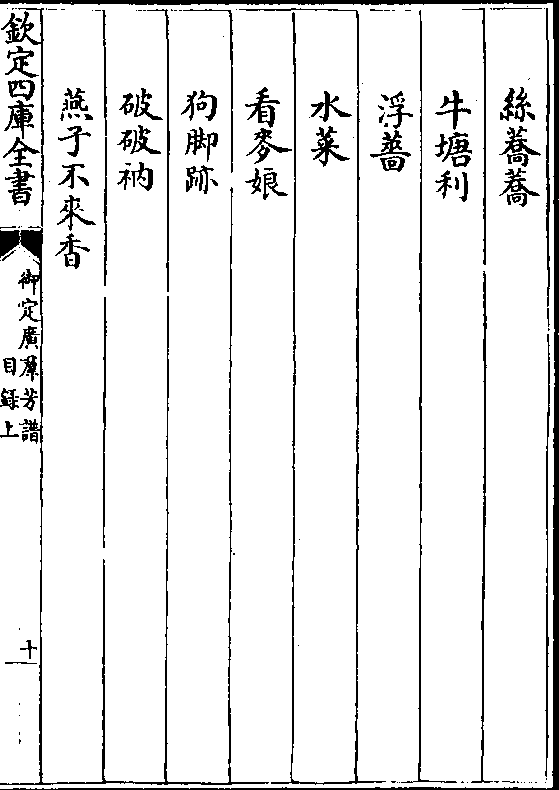 絲蕎蕎
牛塘利
浮薔
水菜
看麥娘
狗脚跡
破破衲
燕子不來香
欽定四庫全書
御定廣羣芳譜
目録上
十